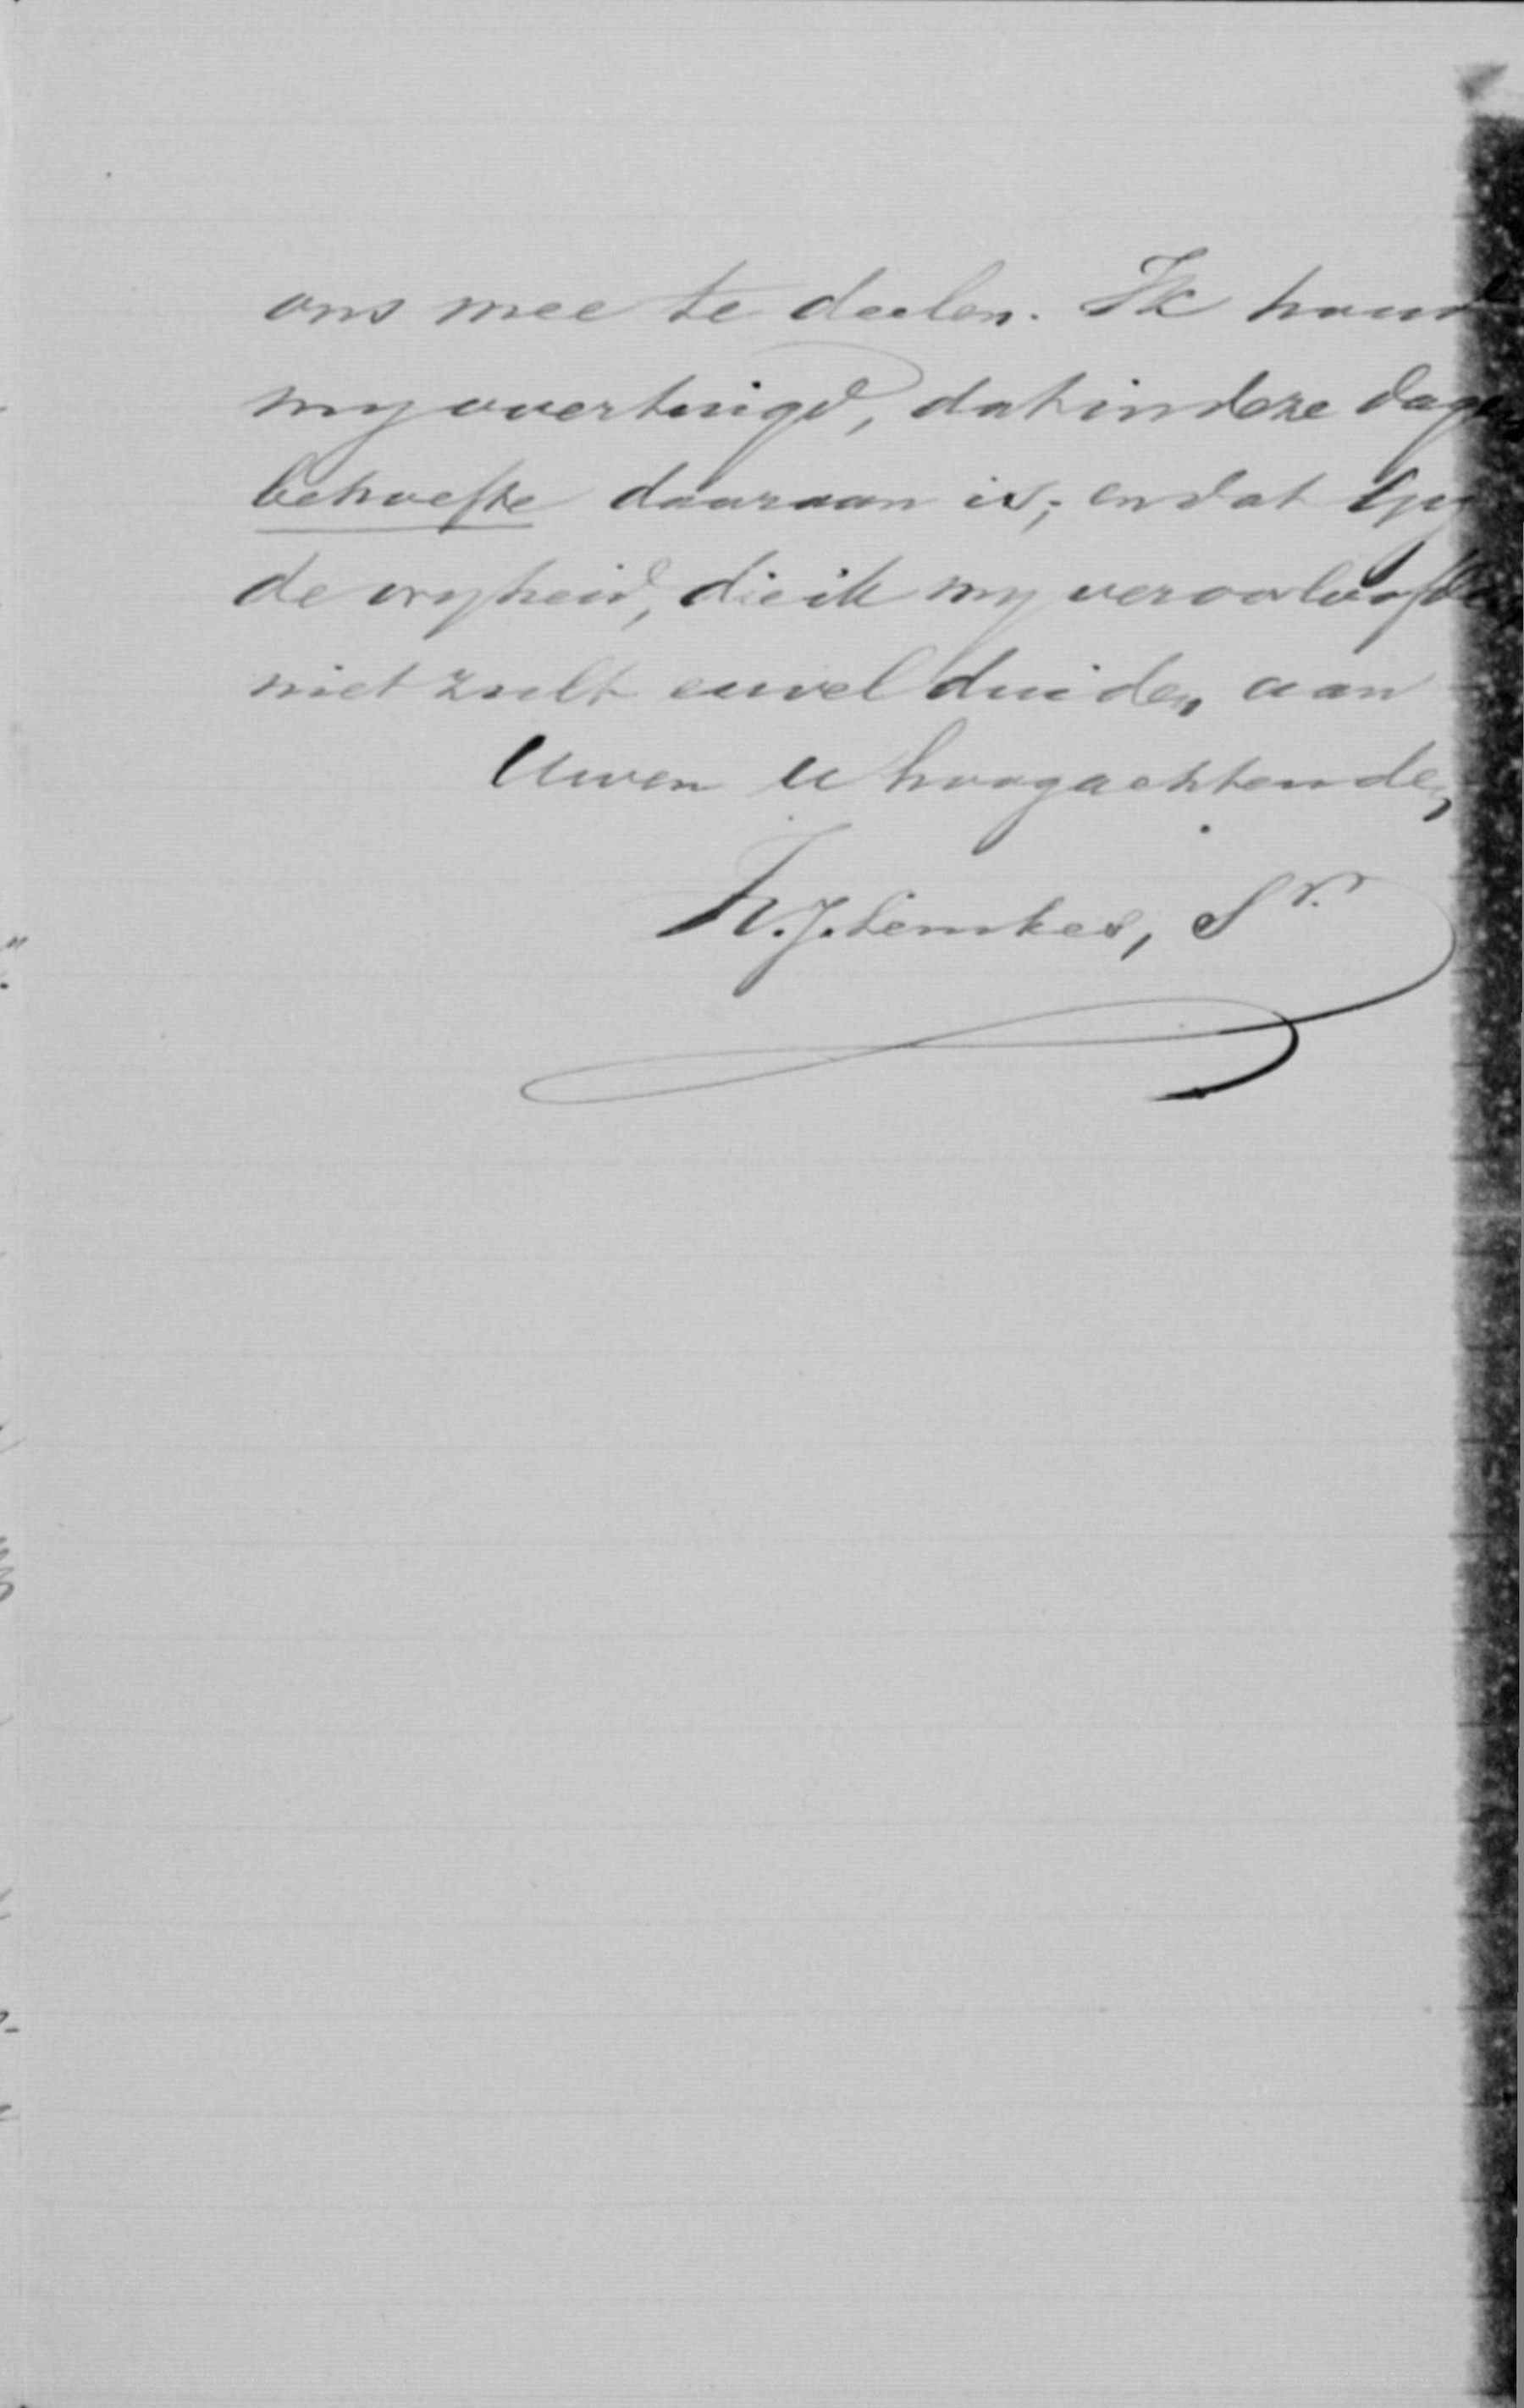 ons mee te deelen. Ik houd
my overtuigd, dat in deze dagen
behoefte daaraan is; en dat Gy
de vryheid, die ik my veroorloofde
niet zult euvel duiden, aan
Uwen U hoogachtenden,
H.J. Lemkes, Sr.